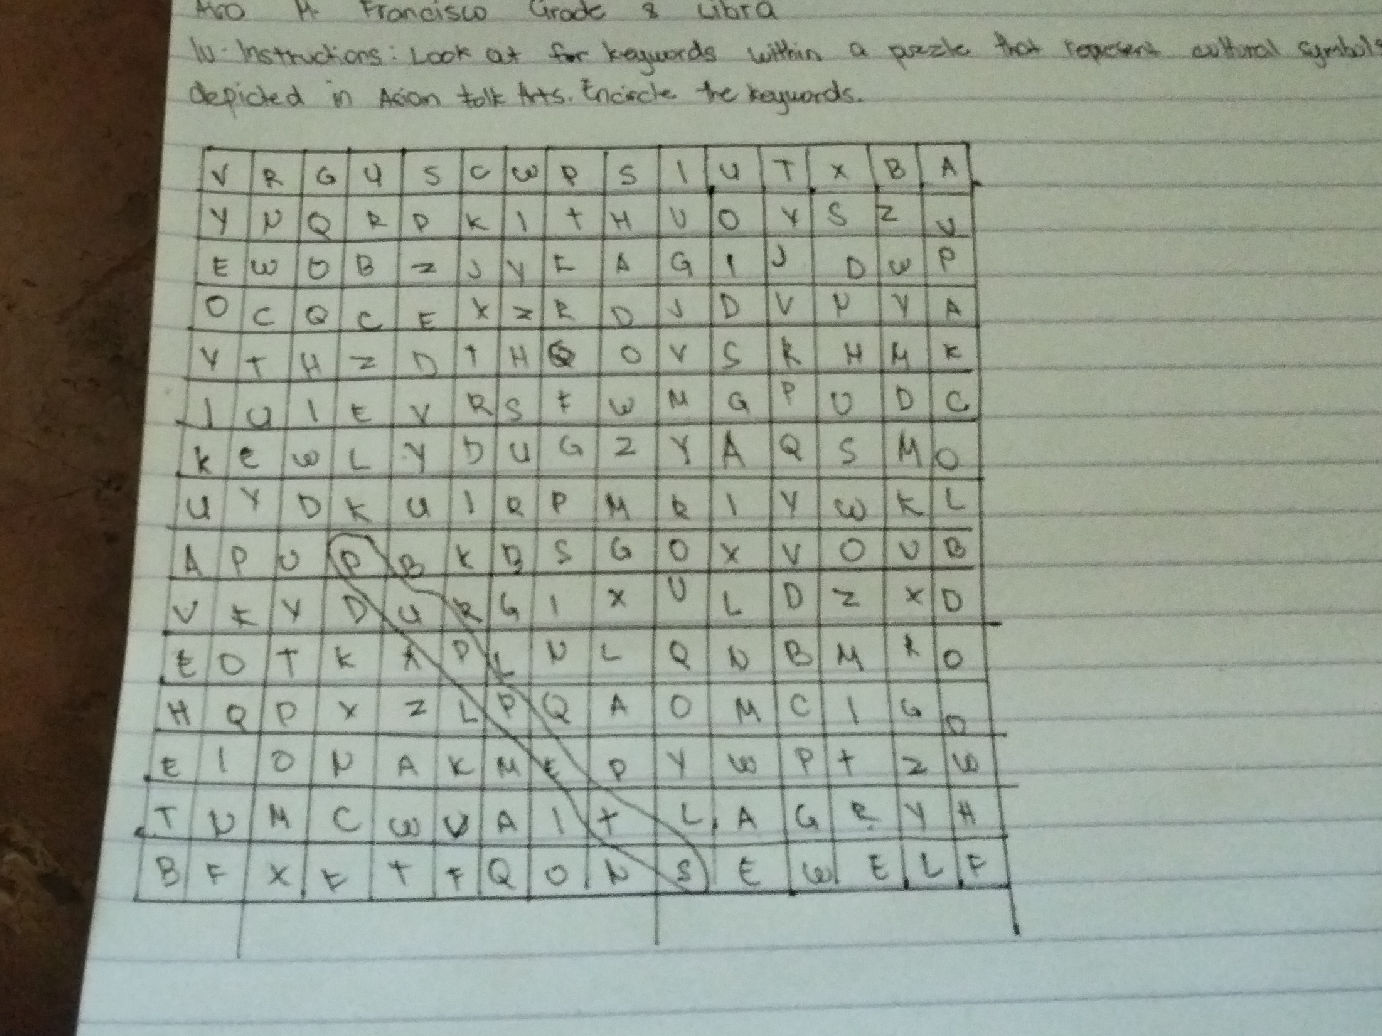 Francisco Grade 8 Libra
IV. Instructions: Look at for keywords within a puzzle that represent cultural symbols
depicted in Asian folk Arts. Encircle the keywords.
V R G U S C W P S I U T X B A
Y N Q R P K I T H U O Y S Z V
E W O B Z J Y E A G I J D W P
O C Q C E X Z R D J D V N Y A
Y T H Z D T H Q O V S R H M K
J U I E V R S F W M G P U D C
K e W L Y D U G Z Y A Q S M O
U Y D K U I R P M R I Y W K L
A P U P B K B S G O X V O U B
V K Y D U R G I X U L D Z X D
E O T K A P L N L Q N B M A O
H Q P Y Z L P Q A O M C I G D
E I O N A K M E P Y W P t Z W
T N M C W V A I t L A G R Y H
B F X F T F Q O N S E W E L F